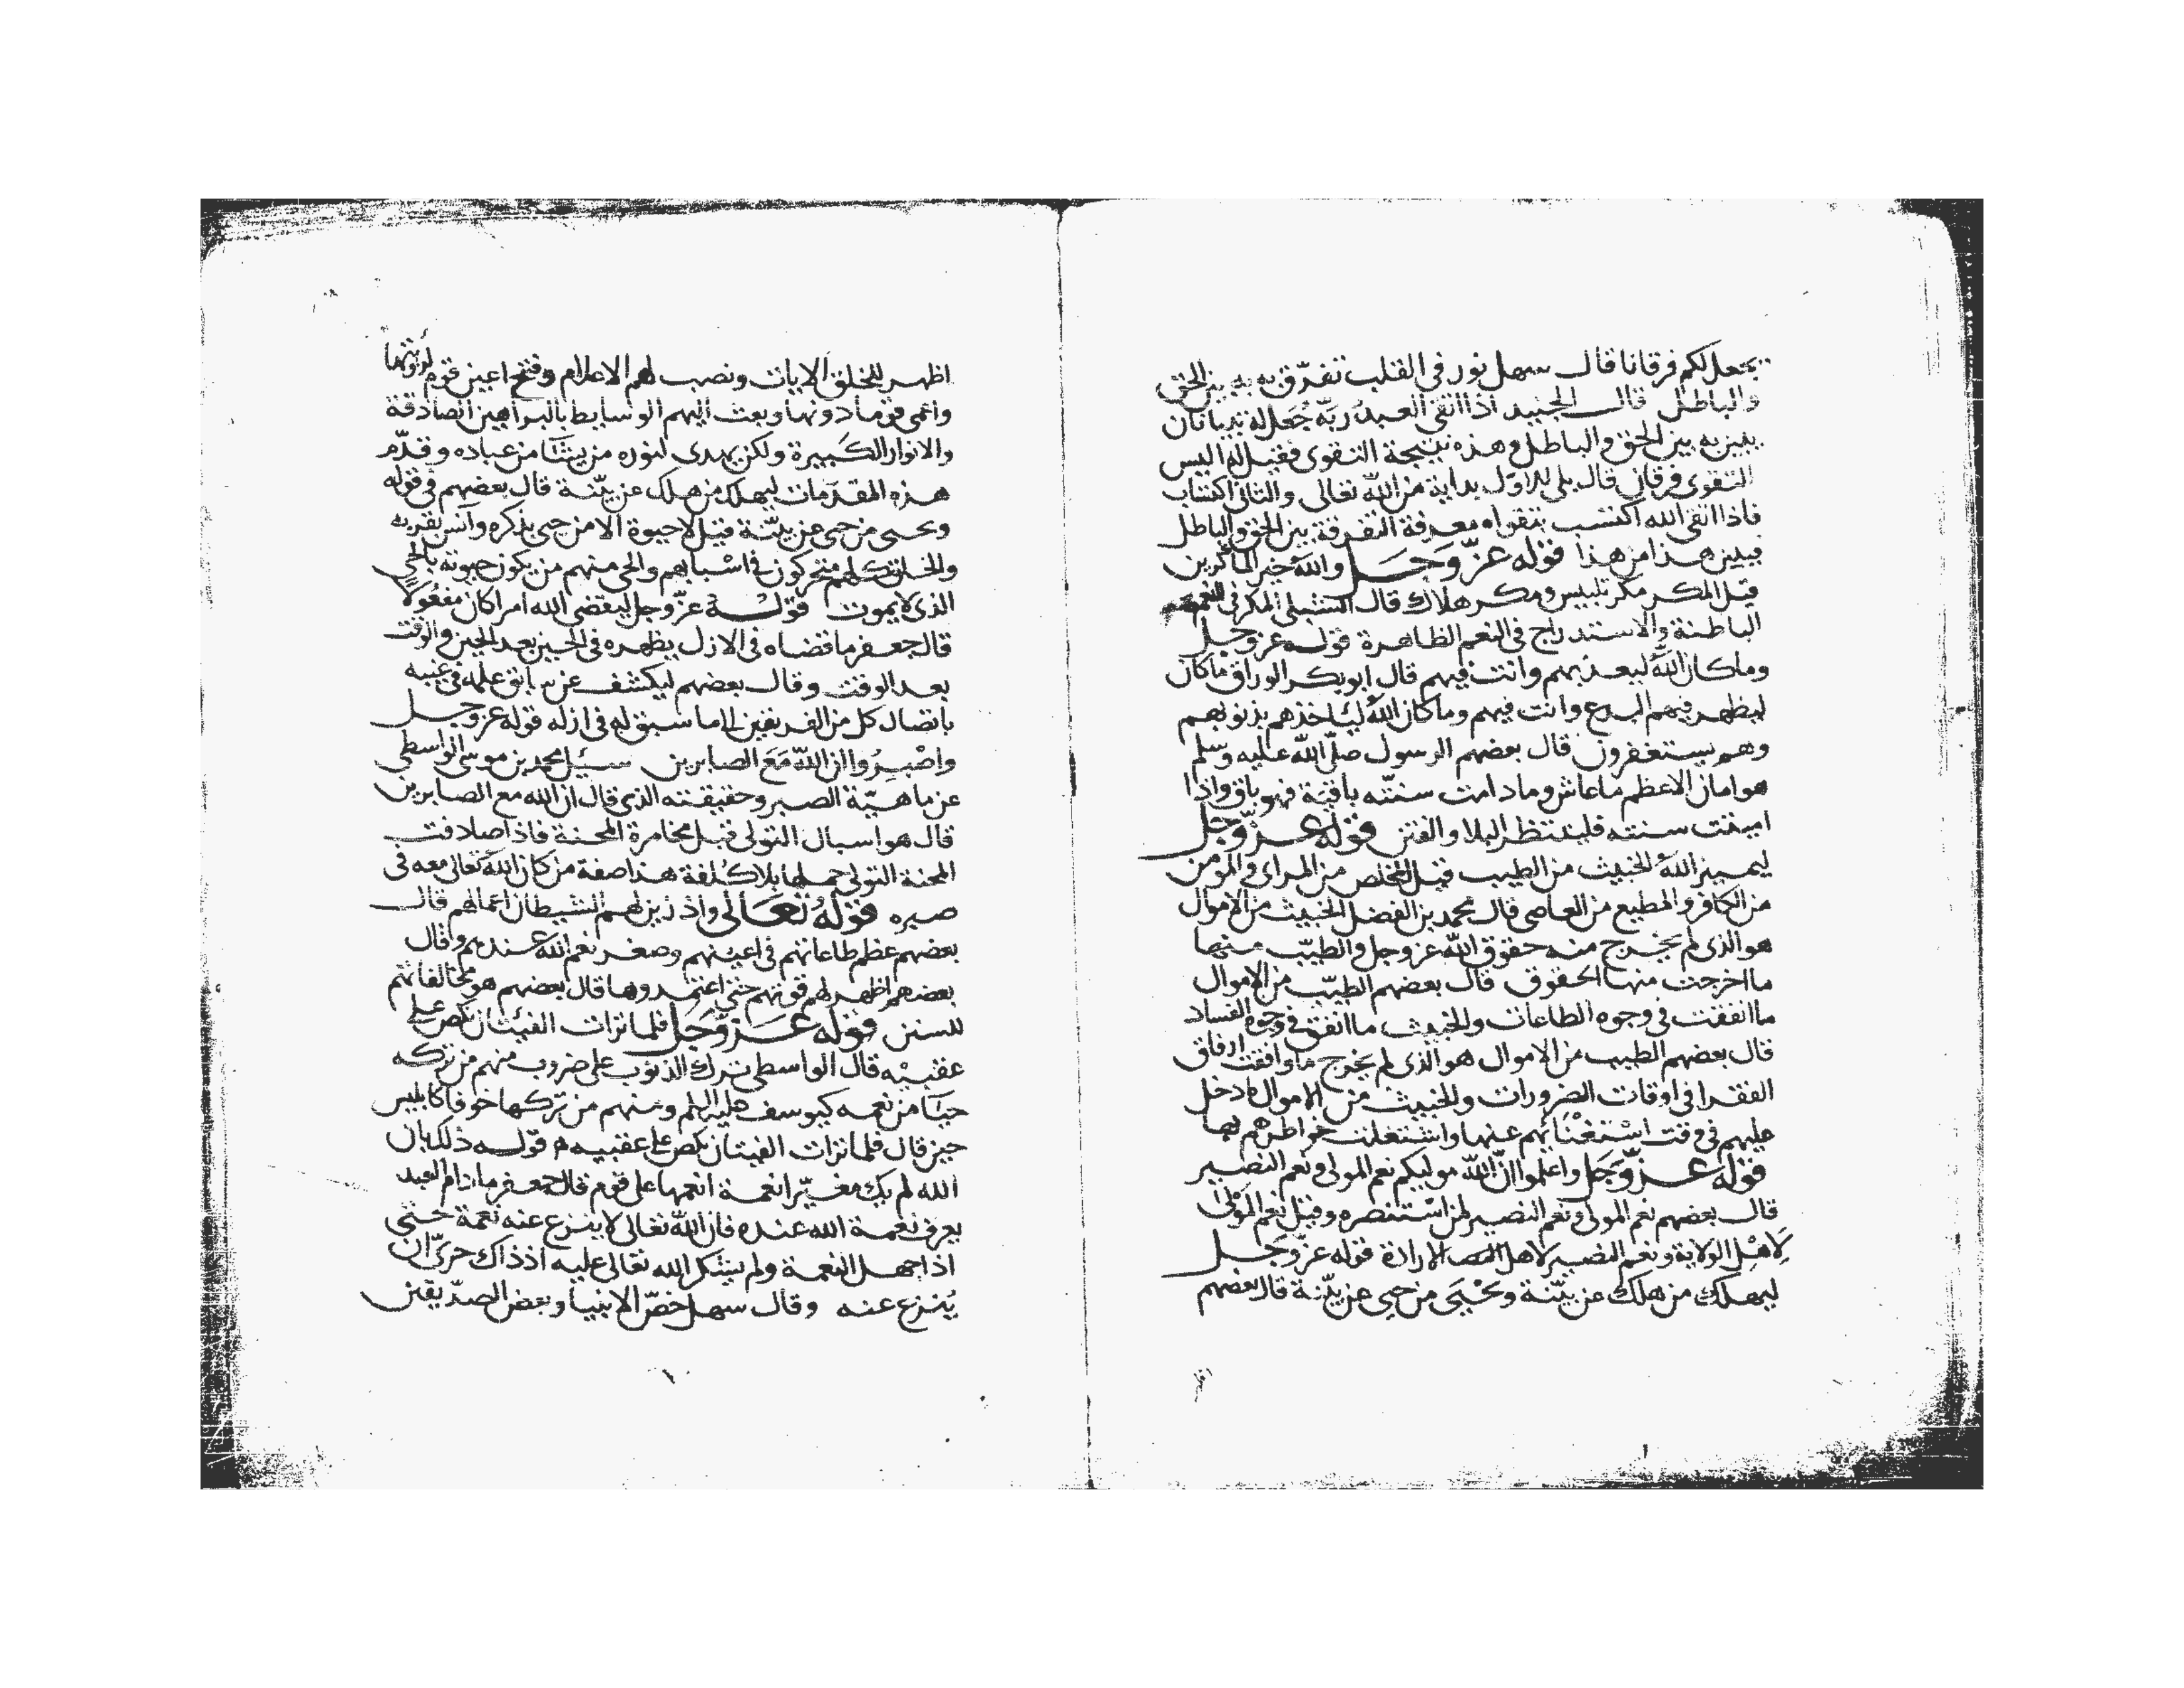 يجعل لكم فرقانا قال سهل نور في القلب تفرّق به بين الحق
والباطل قال الجنيد اذا اتقى العبد ربّه جُعل له تبيانا ان
يتبين به بين الحق والباطل وهذه نتيجة التقوى فقيل له اليس
التقوى فرقان قال بلى للاول بداية من الله تعالى والثاني اكتساب
فاذا اتقى الله اكتسب بتقواه معرفة التفرقة بين الحق والباطل
فيبين هذا من هذا قوله عزّ وَجَل والله خير الماكرين
قيل المكر مكر تلبيس ومكر هلاك قال الشبلي المكر في النعم
الباطنة والاستدراج في النعم الظاهرة قوله عز وجل
وما كان الله ليعذبهم وانت فيهم قال ابو بكر الوراق ما كان
ليظهر فيهم البدع وانت فيهم وما كان الله لياخذهم بذنوبهم
وهم يستغفرون قال بعضهم الرسول صلى الله عليه وسلم
هو امان الاعظم ما عاش وما دامت سنتّه باقية فهو باق واذا
اميتت سنته فلينتظر البلا والفتن قوله عزّ وجل
ليميز الله الخبيث من الطيب قيل المخلص من المرائ والمومن
من الكافر والمطيع من العاصي قال محمد بن الفضل الخبيث من الاموال
هو الذي لم يخرج منه حقوق الله عز وجل والطيّب منها
ما اخرجت منها الحقوق قال بعضهم الطيّب من الاموال
ما انفقت في وجوه الطاعات والخبيث ما انفق في وجوه الفساد
قال بعضهم الطيب من الاموال هو الذي لم يخرج ما وافقت ارفاق
الفقرا في اوقات الضرورات والخبيث من الاموال ما دخل
عليهم في وقت استغنائهم عنها واشتغلت خواطرهم بها
قوله عزّ وَجَل واعلموا انّ الله موليكم نعم المولى ونعم النصير
قال بعضهم نعم المولى ونعم النصير لمن استنصره وقيل نعم المَوْلىٰ
لاَهْلِ الولاية ونعم النصير لاهل الارادة قوله عزّ وَجَل
ليهلك من هلك عن بيّنة ويَحْيَى من حيي عن بيّنة قال بعضهم
اظهر للخلق الايات ونصب لهم الاعلام وفتح اعين قوم لرؤيتها
واعمى قوما دونها وبعث اليهم الوسايط بالبراهين الصادقة
والانوار الكبيرة ولكن يهدى لنوره من يشا من عباده وقدّم
هذه المقدّمات ليهلك من هلك عن بيّنة قال بعضهم في قوله
ويحيى من حي عن بيّنة قيل لا حيوة الا من حيي بذكره وآنس بقربه
والخلق كلهم متحركون في اسْبابهم والحي منهم من يكون حيوته بالحي
الذى لا يموت قوله عزّ وجل ليقضي الله امرا كان مفعُولاً
قال جعفر ما قضاه في الازل يظهره في الحين بعد الحين والوقت
بعد الوقت وقال بعضهم ليكشف عن سابق علمه في غيبه
باتصال كل من الفريقين الى ما سبق له في ازله قوله عز وجل
واصْبِرُوا ان الله مَعَ الصابرين سئيل محمد بن موسى الواسطي
عن ماهيّة الصبر وحقيقته الذي قال ان الله مع الصابرين
قال هو اسبال التولي قبل مخامرة المحنة فاذا صادفت
المحنة التولي حملها بلا كُلفة هذا صفة من كان الله تعالى معه في
صبره قولهُ تعَالى واذ زين لهم الشيطان اعمالهم قال
بعضهم عظم طاعاتهم في اعينهم وصغر نعم الله عندهم وقال
بعضهم اظهر لهم قوتهم حتى اعتمدوها قال بعضهم هو مخالفاتهم
للسنن قوله عَزّ وَجَل فلما تراات الفئتان نكص على
عقبيْه قال الواسطي ترك الذنوب على ضروب منهم من تركه
حيَا من نعمه كيوسف عليه السلم ومنهم من تركها خوفا كابليس
حين قال فلما تراات الفئتان نكص على عقبيه قوله ذلك بان
الله لم يك مغيّرا نعمة انعمها على قوم قال جعفر ما دام العبد
يعرف نعمة الله عنده فان الله تعالى لا ينزع عنه نعمة حتى
اذا جهل النعمة ولم يشكر الله تعالى عليه اذ ذاك حرىّ ان
يُنزع عنه وقال سهل خصّ الانبيا وبعض الصدّيقين